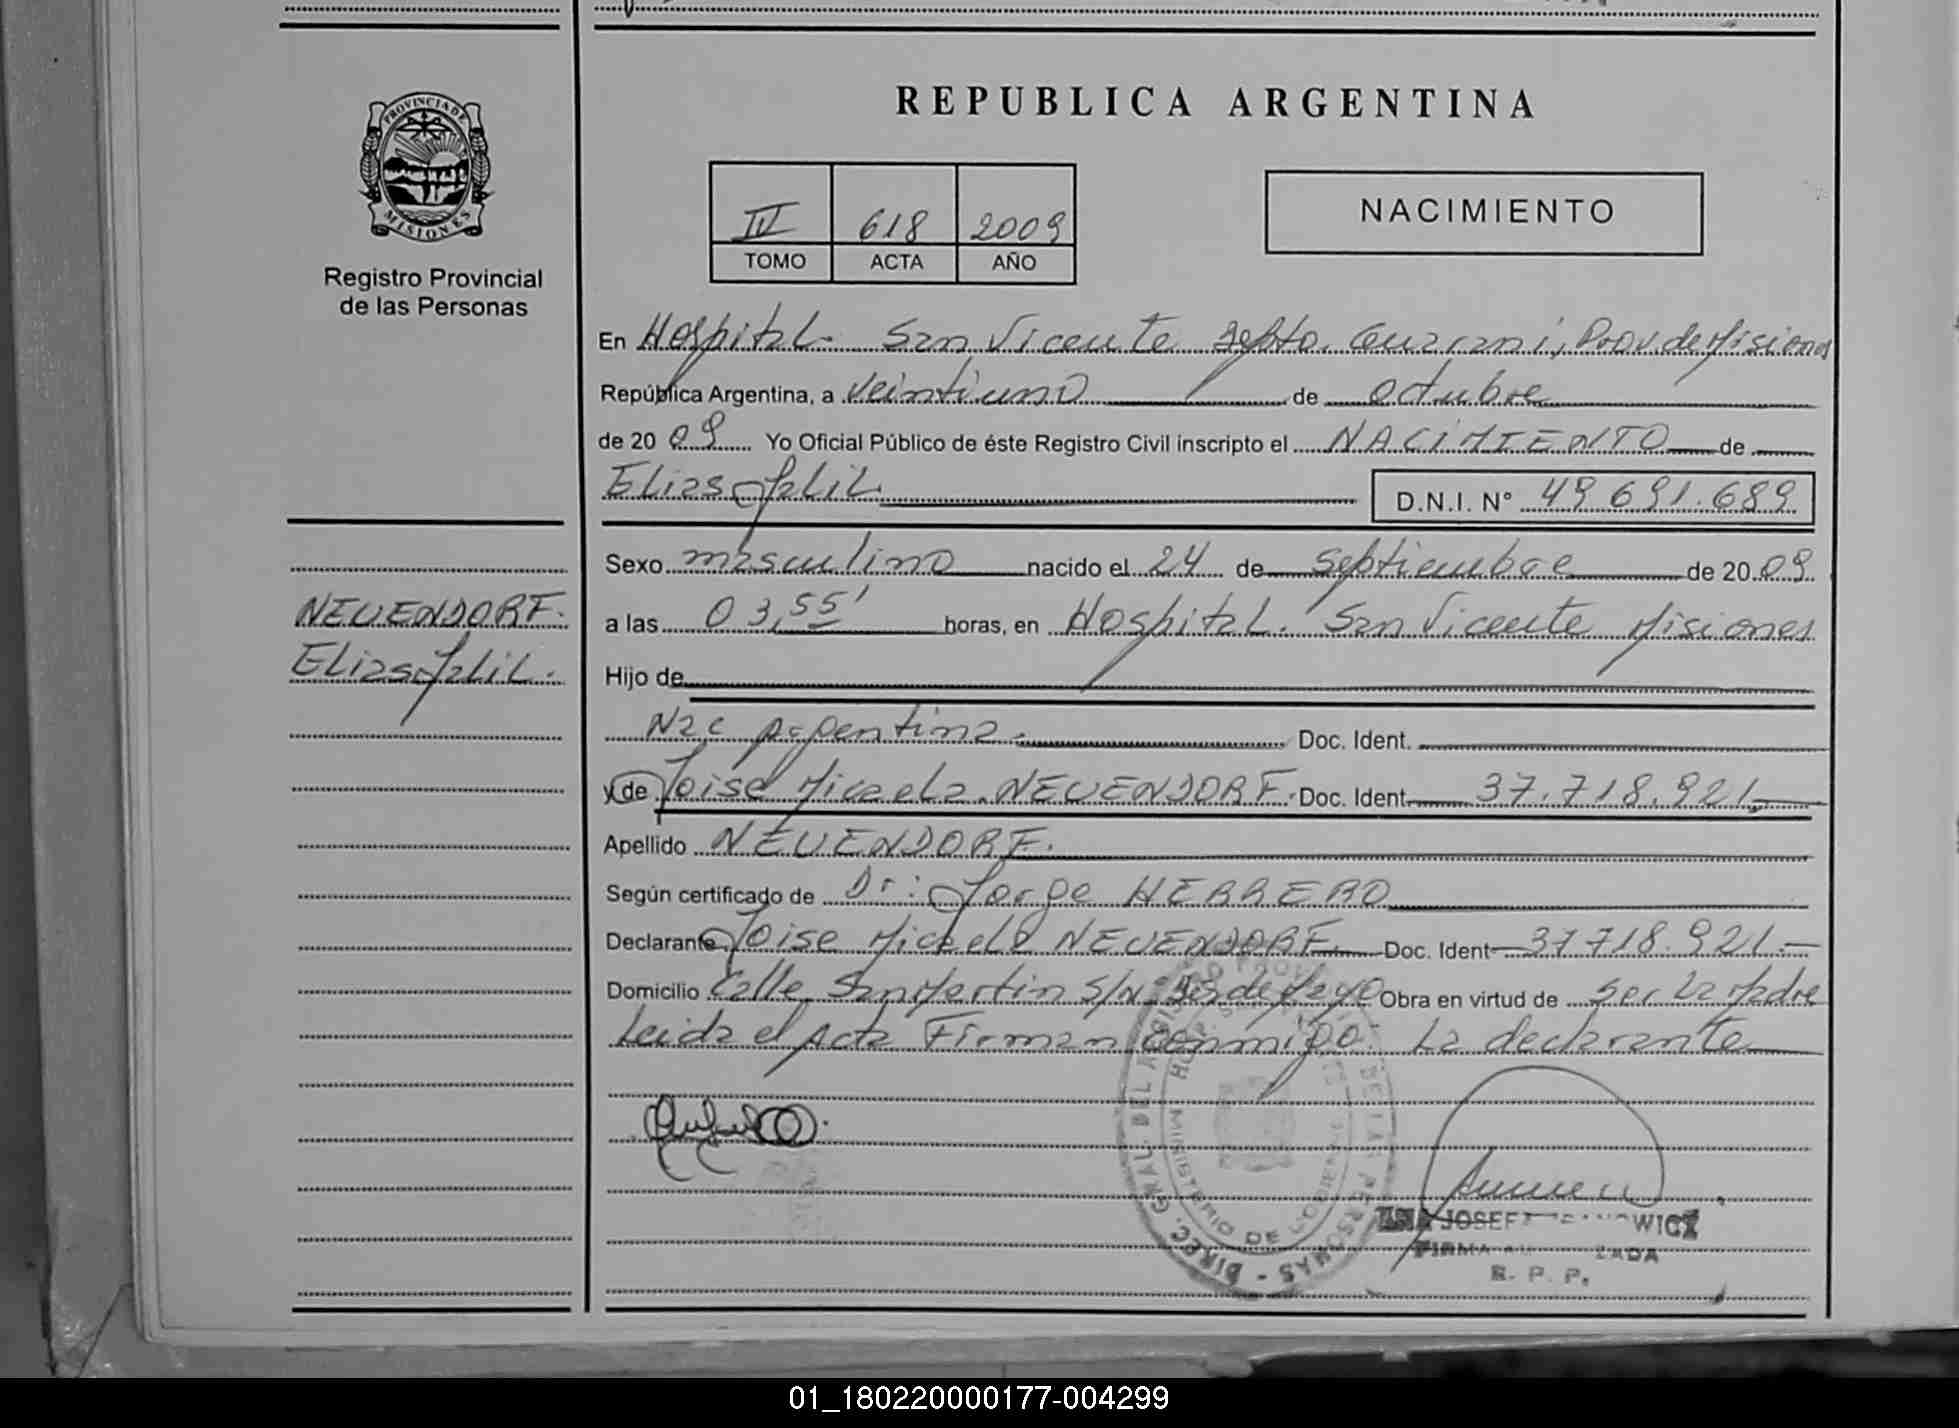 REPUBLICA ARGENTINA
PROVINCIA DE
MISIONES
Registro Provincial
de las Personas
IV 618 2009
TOMO ACTA AÑO
NACIMIENTO
En Hospital. San Vicente Depto. Guarani, Prov de Misiones
República Argentina, a veintiuno de octubre
de 2009 Yo Oficial Público de éste Registro Civil inscripto el NACIMIENTO de
Elias Jalil.
D.N.I. Nº 49 691.689
Sexo masculino nacido el 24 de septiembre de 2009
NEUENDORF.
Elias Jalil.
a las 03,55' horas, en Hospital. San Vicente Misiones
Hijo de
Nac Argentina. Doc. Ident.
y de Joise Micaela NEUENDORF. Doc. Ident 37.718.921.-
Apellido NEUENDORF.
Según certificado de Dr: Jorge HERRERO
Declarante Joise Micaela NEUENDORF. Doc. Ident 37718.921.-
Domicilio Calle San Martin S/N de Mayo Obra en virtud de ser la Madre
Leida el Acta Firman conmigo La declarante
DIREC. GRAL. DEL REGISTRO DE LAS PERSONAS
MINISTERIO DE GOBIERNO
JOSEFA
FIRMA
R. P. P.
01_180220000177-004299